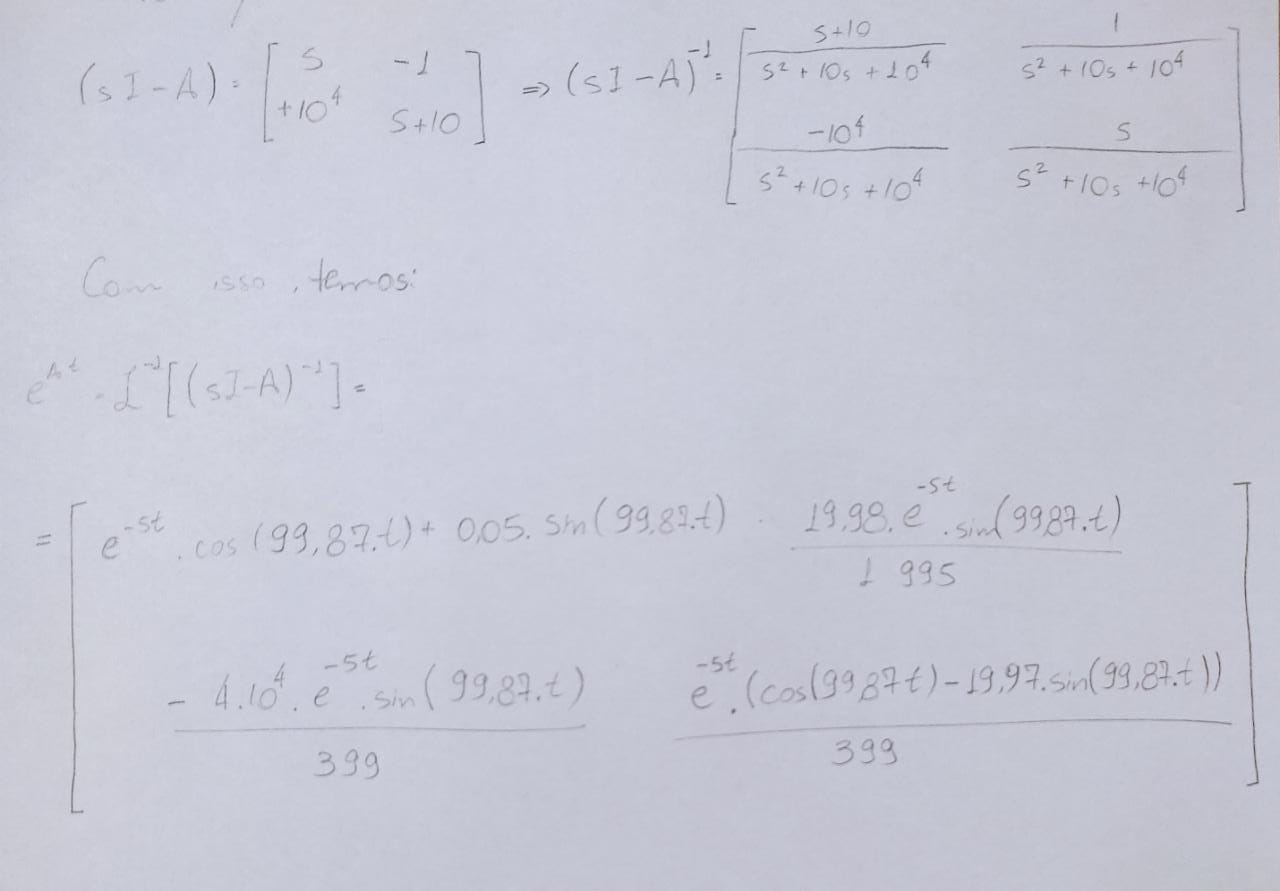 (sI-A) = [ s -1 ; +10⁴ s+10 ] => (sI-A)⁻¹ = [ (s+10)/(s²+10s+10⁴) 1/(s²+10s+10⁴) ; -10⁴/(s²+10s+10⁴) s/(s²+10s+10⁴) ]
Com isso, temos:
e^(At) = L⁻¹[(sI-A)⁻¹] =
= [ e^(-5t) . cos(99,87.t) + 0,05. sin(99,87.t) 19,98. e^(-5t) . sin(99,87.t) / 1 995
- 4.10⁴ . e^(-5t) . sin(99,87.t) / 399 e^(-5t) . (cos(99,87t) - 19,97.sin(99,87.t)) / 399 ]